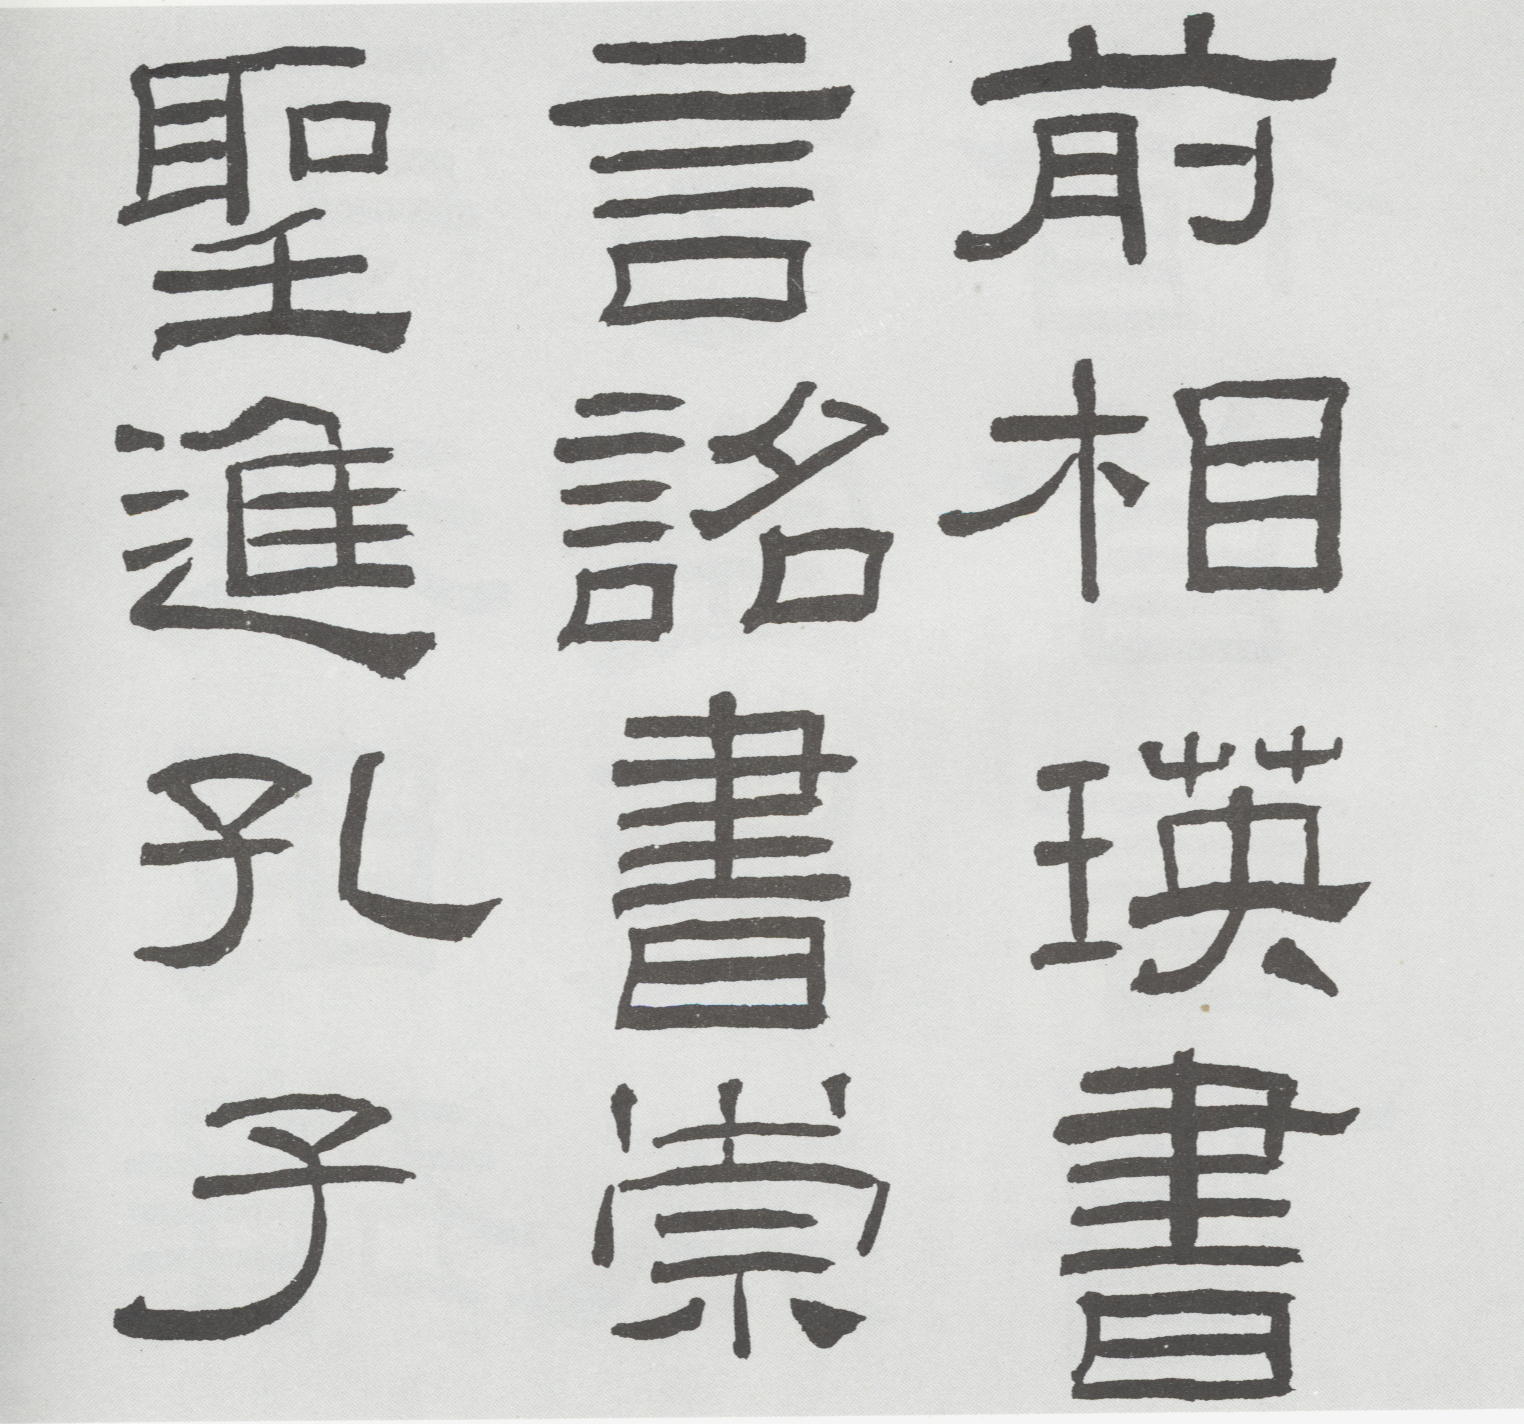 前相瑛書
言詔書崇
聖進孔子